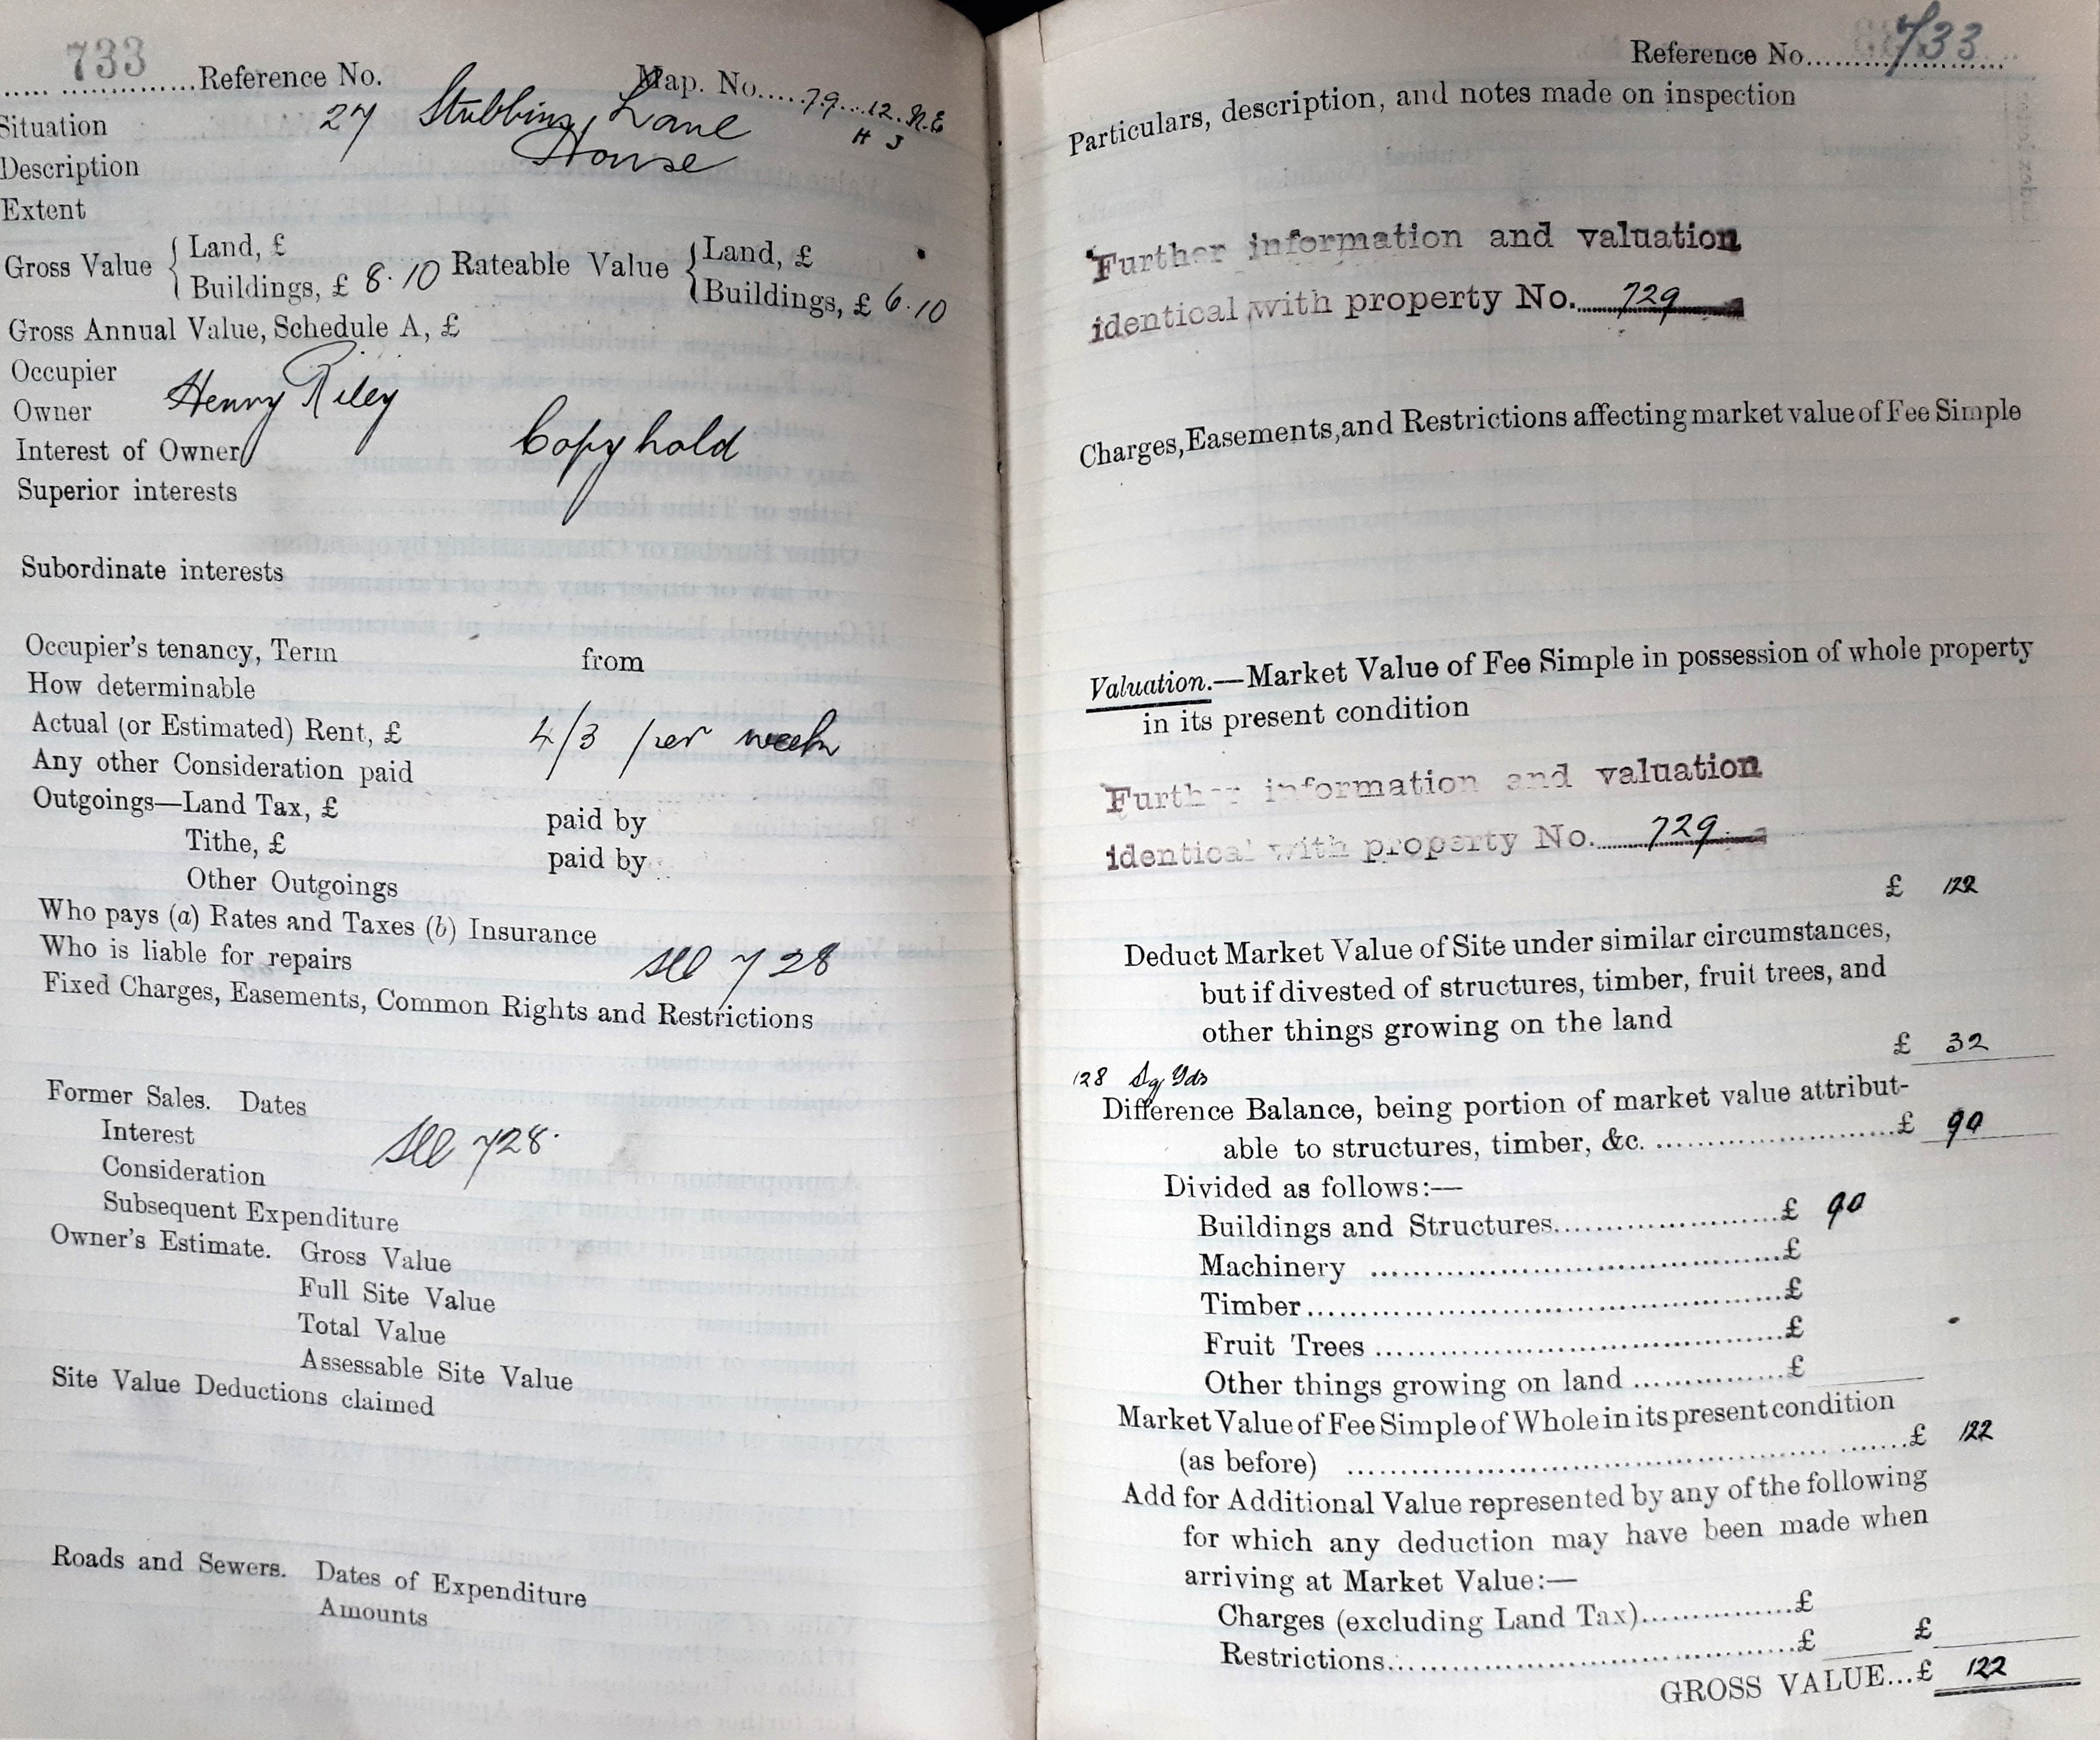 733 Reference No. Map. No. 79.12.N.E
H J
Situation 27 Stubbin, Lane
Description House
Extent
Gross Value { Land, £ Rateable Value { Land, £
Buildings, £ 8.10 Buildings, £ 6.10
Gross Annual Value, Schedule A, £
Occupier
Owner Henry Riley
Interest of Owner Copyhold
Superior interests
Subordinate interests
Occupier's tenancy, Term from
How determinable
Actual (or Estimated) Rent, £ 4/3 per week
Any other Consideration paid
Outgoings—Land Tax, £ paid by
Tithe, £ paid by
Other Outgoings
Who pays (a) Rates and Taxes (b) Insurance
Who is liable for repairs see 728
Fixed Charges, Easements, Common Rights and Restrictions
Former Sales. Dates
Interest see 728.
Consideration
Subsequent Expenditure
Owner's Estimate. Gross Value
Full Site Value
Total Value
Assessable Site Value
Site Value Deductions claimed
Roads and Sewers. Dates of Expenditure
Amounts
Reference No. 733
Particulars, description, and notes made on inspection
Further information and valuation
identical with property No. 729
Charges, Easements, and Restrictions affecting market value of Fee Simple
Valuation.—Market Value of Fee Simple in possession of whole property
in its present condition
Further information and valuation
identical with property No. 729
£ 122
Deduct Market Value of Site under similar circumstances,
but if divested of structures, timber, fruit trees, and
other things growing on the land
£ 32
128 Sq Yds
Difference Balance, being portion of market value attribut-
able to structures, timber, &c. £ 90
Divided as follows:—
Buildings and Structures £ 90
Machinery £
Timber £
Fruit Trees £
Other things growing on land £
Market Value of Fee Simple of Whole in its present condition
(as before) £ 122
Add for Additional Value represented by any of the following
for which any deduction may have been made when
arriving at Market Value:—
Charges (excluding Land Tax) £
Restrictions £ £
GROSS VALUE...£ 122